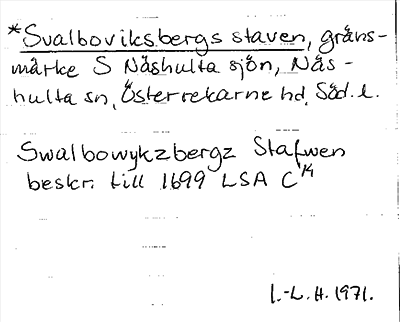 *Svalboviksbergs staven, gräns-
märke S Näshulta sjön, Näs-
hulta sn, Österrekarne hd, Söd. l.
Swalbowykzbergz Stafwen
beskr. till 1699 LSA C¹⁴
I.-L. H. 1971.